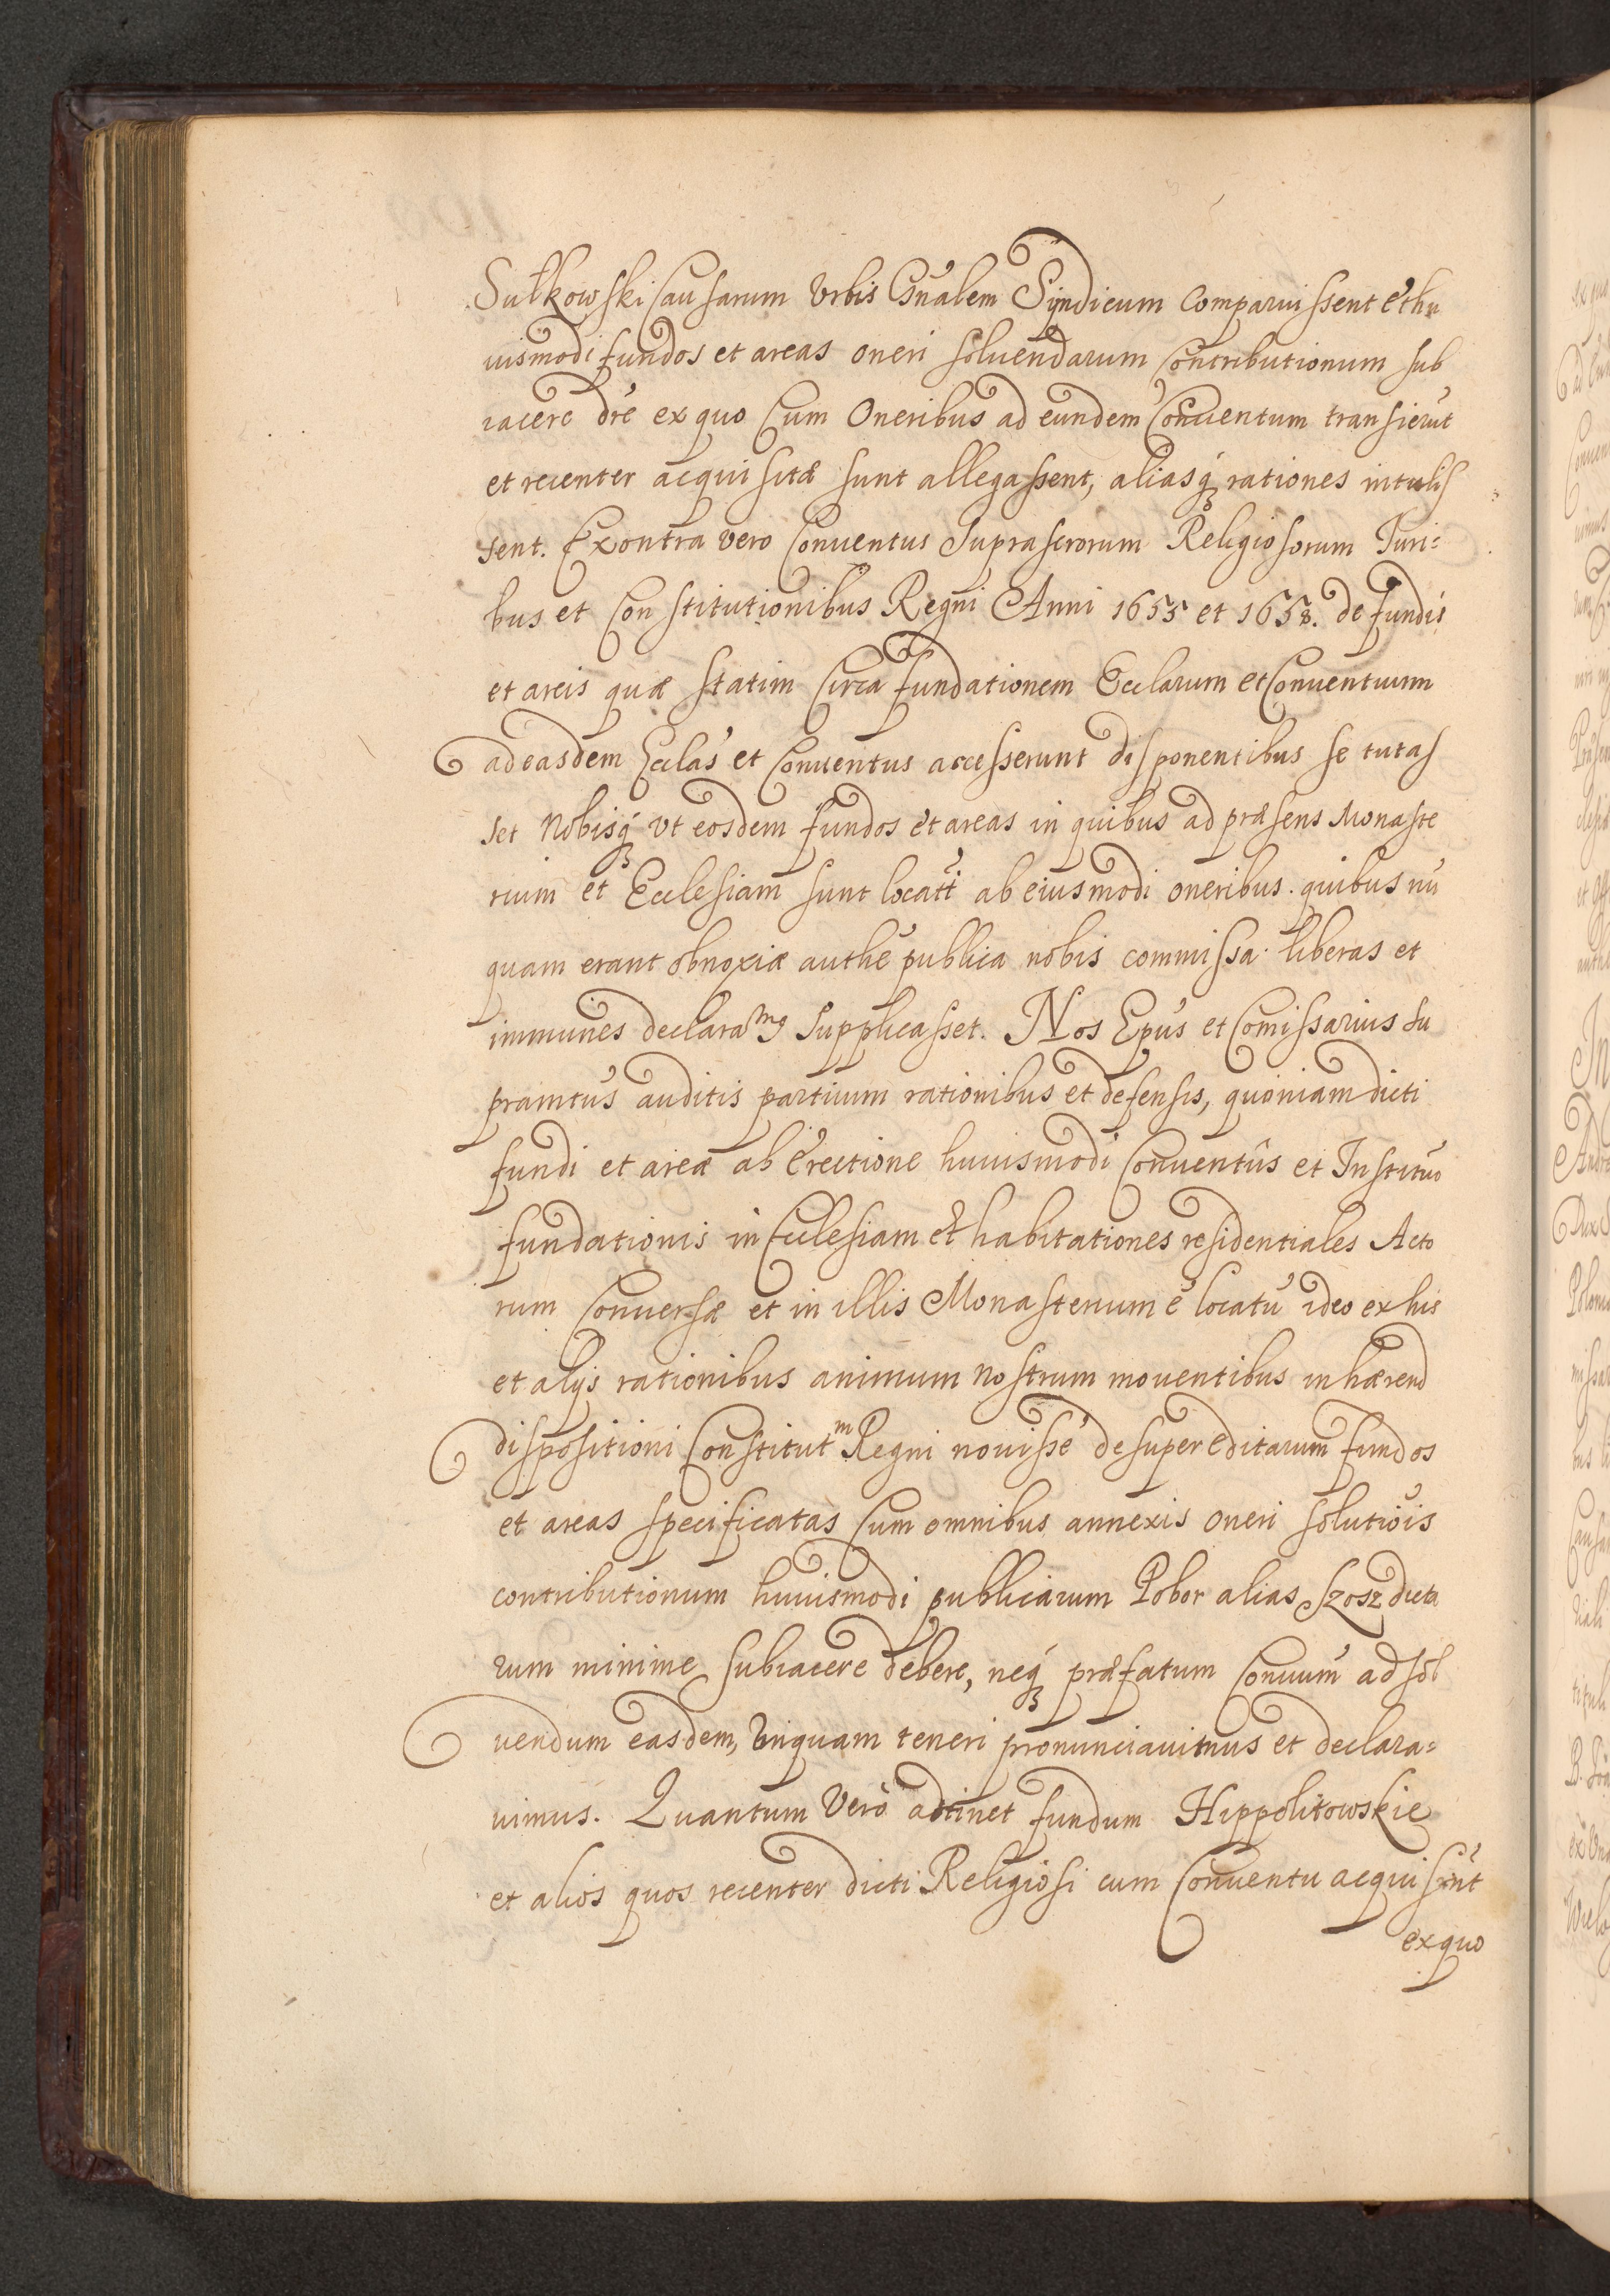 Sułkowski Causarum Urbis Gn̄alem Syndicum Comparuissent et hu
iusmodi fundos et areas oneri soluendarum Contributionum sub
iacere dr̄e ex quo Cum Oneribus ad eundem Conuentum transierūt
et recenter acquisitæ sunt allegassent, aliasq́ rationes intulis
sent. Exontra vero Conuentus Suprascrorum Religiosorum Juri=
bus et Constitutionibus Regni Anni 1655 et 1658. de fundis
et areis quæ statim Circa fundationem Ecclarum et Conuentuum
ad easdem Ecclas et Conuentus accesserunt disponentibus se tutas
set Nobisq́ vt eosdem fundos et areas in quibus ad præsens Monaste
rium et Ecclesiam sunt locati ab eiusmodi oneribus. quibus nū
quam erant obnoxiæ authē publica nobis commissa liberas et
immunes declaramg Supplicasset. Nos Epūs et Comissarius Su
pramtūs auditis partium rationibus et defensis, quoniam dicti
fundi et areæ ab Erectione huiusmodi Conuentûs et Institūo
fundationis in Ecclesiam et habitationes residentiales Acto
rum Conuersæ et in illis Monasterium ē locatū ideo ex his
et alijs rationibus animum nostrum mouentibus inhærend
dispositioni Constitutm Regni nouissē desuper editarum fundos
et areas specificatas Cum omnibus annexis oneri solutiōis
contributionum huiusmodi publicarum Pobor alias Szosz dicta
rum minime subiacere debere, neq́ præfatum Conuum̄ ad sol
uendum easdem, unquam teneri pronunciauimus et declara=
uimus. Quantum Verò adtinet fundum Hippolitowskie
et alios quos recenter dicti Religiosi cum Conuentu acquisrn̄t
ex quo